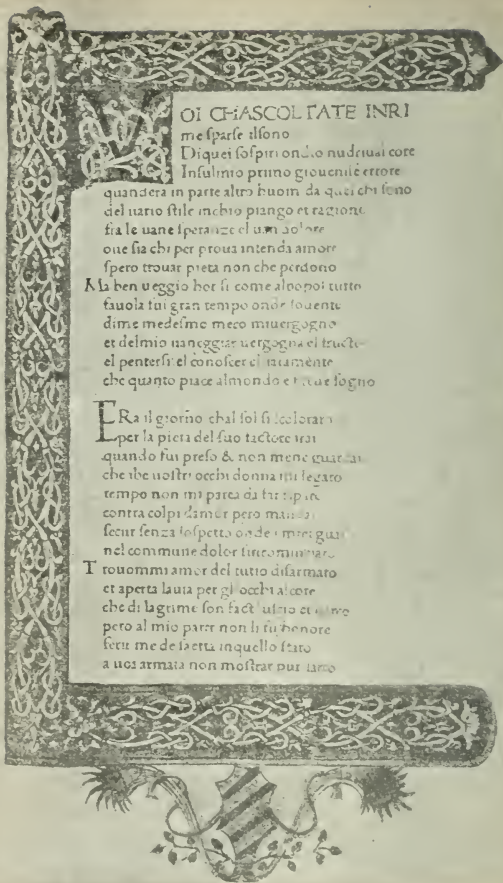 VOI CHASCOLTATE INRI
me sparse ilsono
Di quei sospiri ondio nudriual core
Insulmio primo giouenile errore
quandera in parte altro huom da quel chi sono
del uario stile inchio piango et ragiono
fra le uane speranze el uan dolore
oue sia chi per proua intenda amore
spero trouar pieta non che perdono
Ma ben ueggio hor si come alpopol tutto
fauola fui gran tempo onde souente
dime medesmo meco miuergogno
et delmio uaneggiar uergogna el fructo
el pentersi el conoscer chiaramente
che quanto piace almondo e breue sogno
ERa il giorno chal sol si scoloraro
per la pieta del suo factore irai
quando fui preso & non mene guardai
che ibe uostri occhi donna mi legaro
tempo non mi parea da far riparo
contra colpi damor pero mandai
secur senza sospetto onde i miei guai
nel commune dolor sincominciaro
Trouommi amor del tutto disarmato
et aperta lauia per gliocchi alcore
che di lagrime son facti uscio et uarco
pero al mio parer non li fu honore
ferir me de saetta inquello stato
a uoi armata non mostrar pur larco